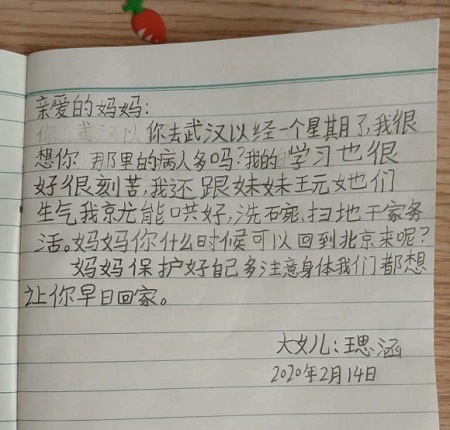 亲爱的妈妈:
你去武汉以经一个星期了,我很
想你 那里的病人多吗?我的学习也很
好很刻苦,我还跟妹妹玩她们
生气我京尤能哄好,洗石宛,扫地干家务
活。妈妈你什么时候可以回到北京来呢?
妈妈保护好自己多注意身体我们都想
让你早日回家。
大女儿:王思涵
2020年2月14日